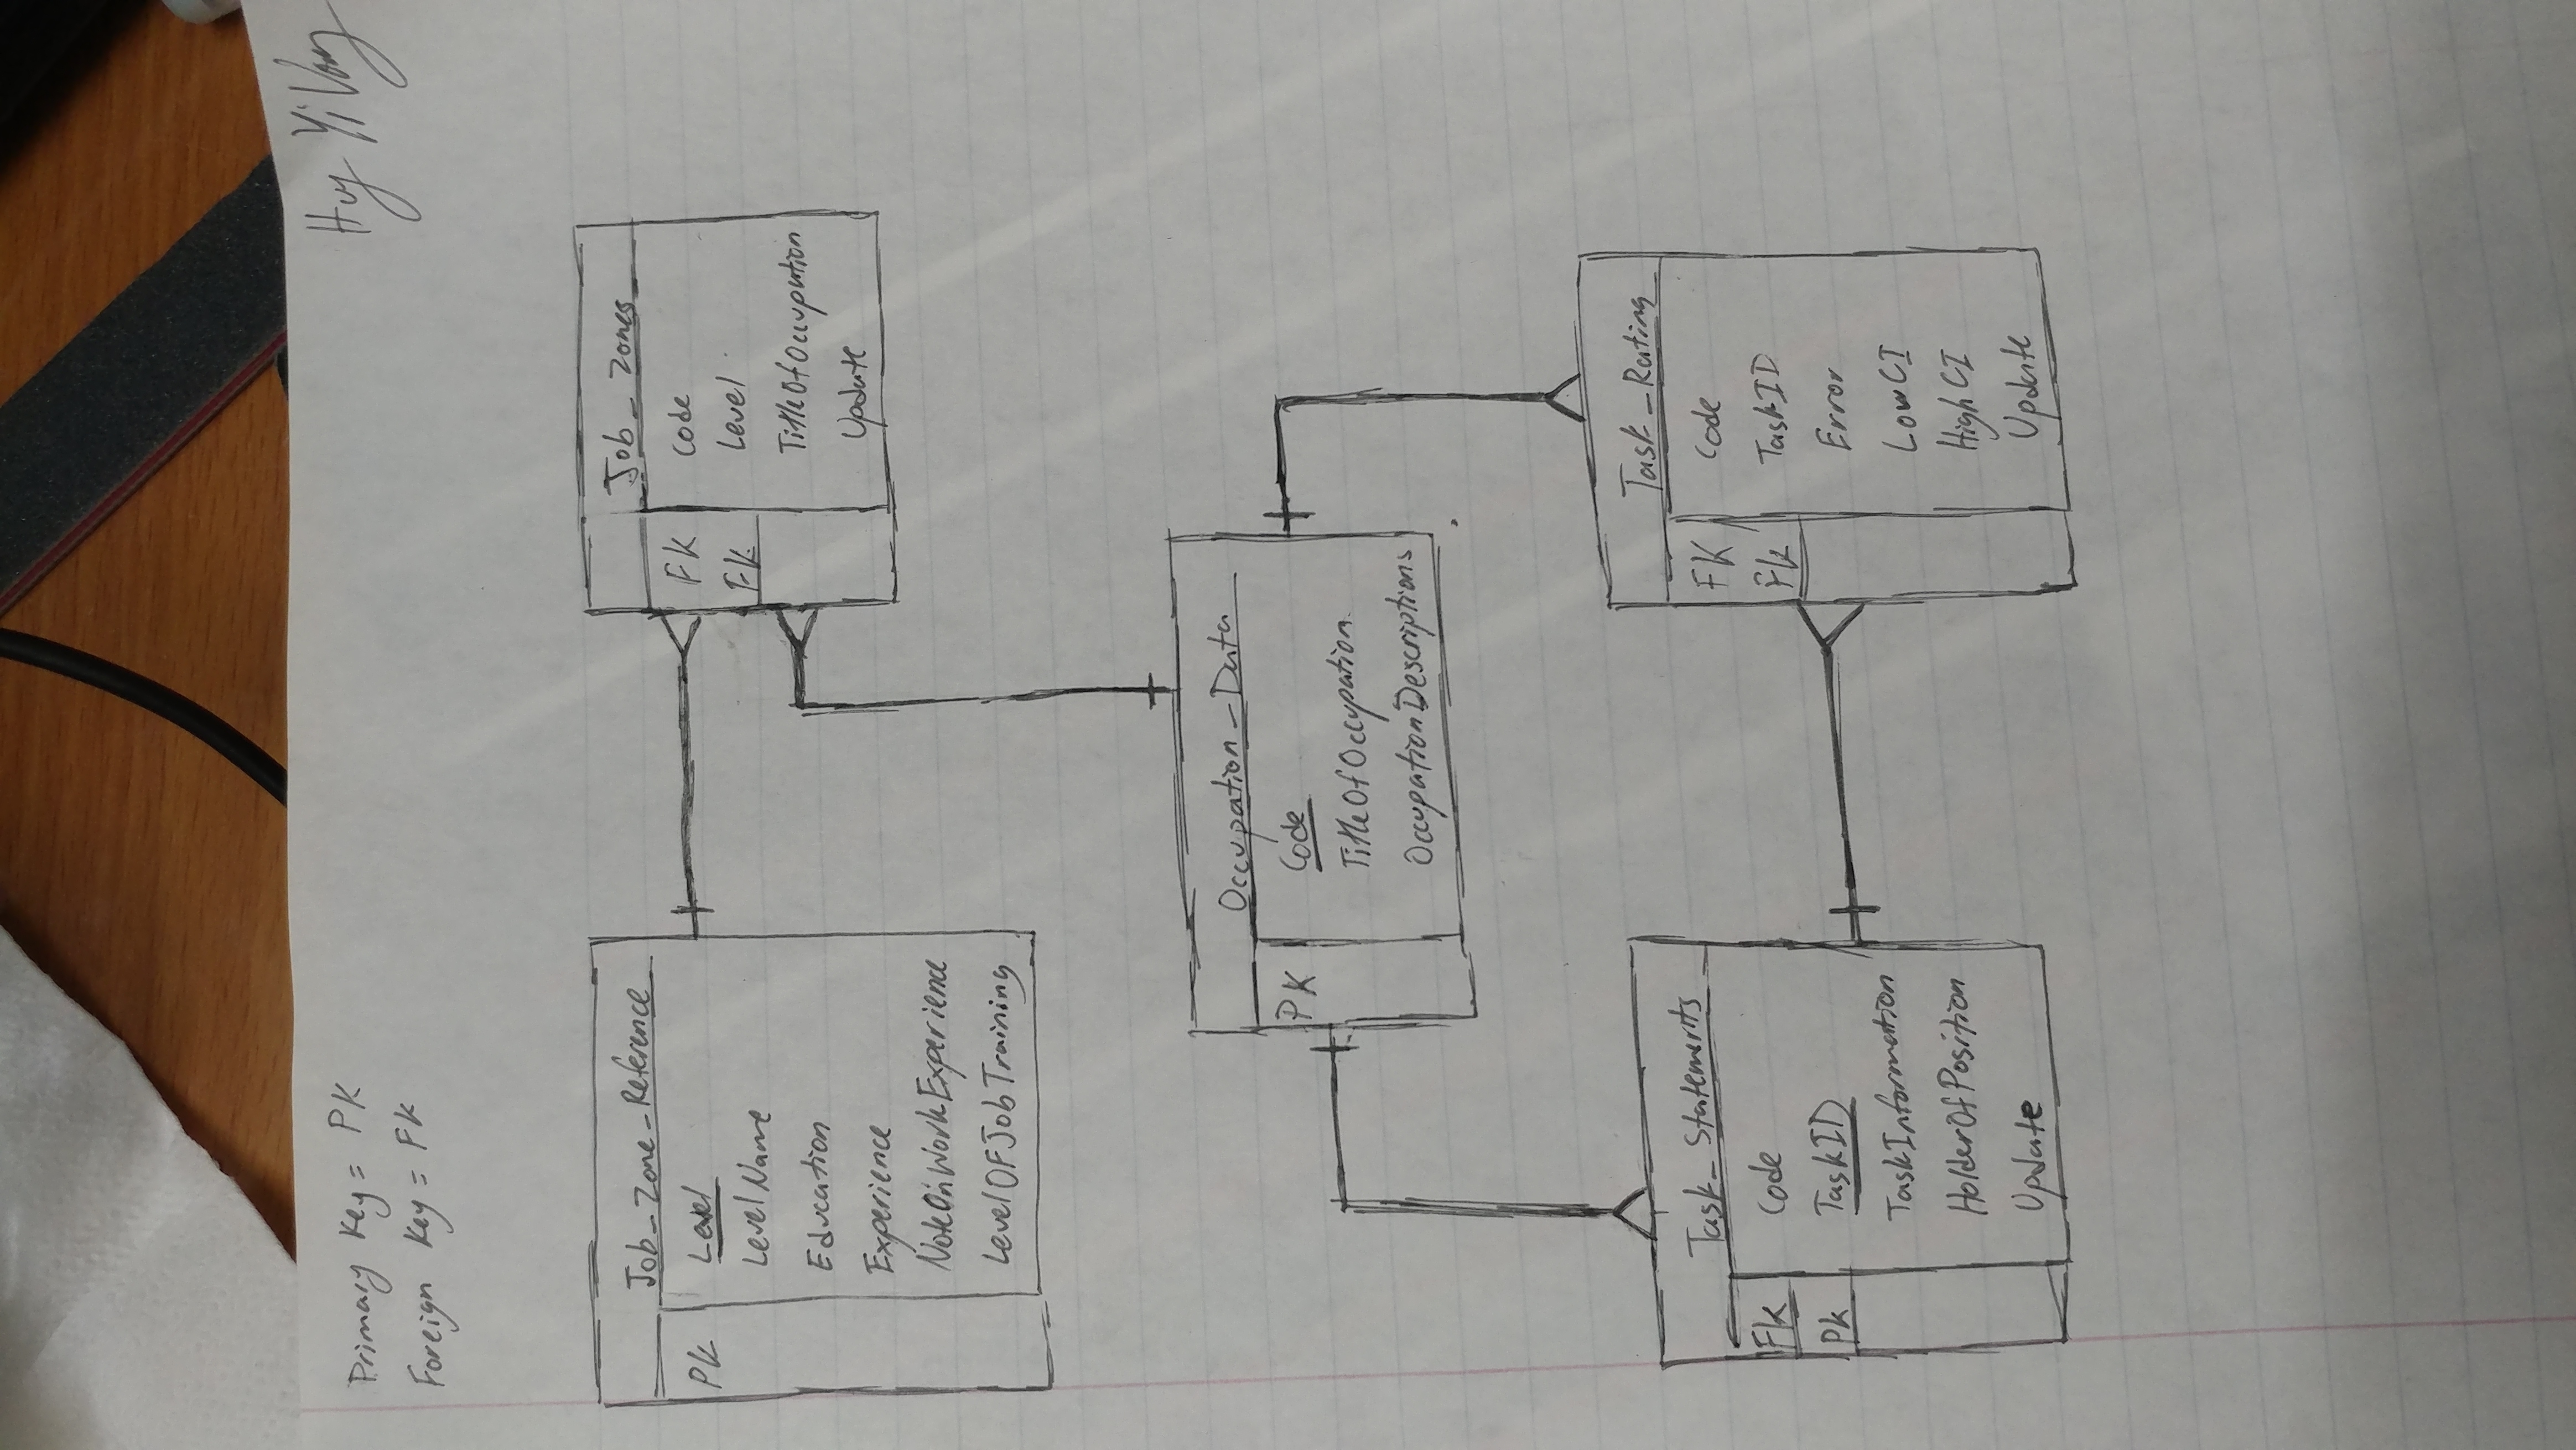 Primary Key = PK
Foreign Key = FK
Huy Yi Vong
Job_Zone_Reference
PK Level
LevelName
Education
Experience
NoteOnWorkExperience
LevelOfJobTraining
Job_Zones
FK Code
FK Level
TitleOfOccupation
Update
Occupation_Data
PK Code
TitleOfOccupation
OccupationDescriptions
Task_Statements
FK Code
PK TaskID
TaskInformation
HolderOfPosition
Update
Task_Rating
FK Code
FK TaskID
Error
LowCI
HighCI
Update